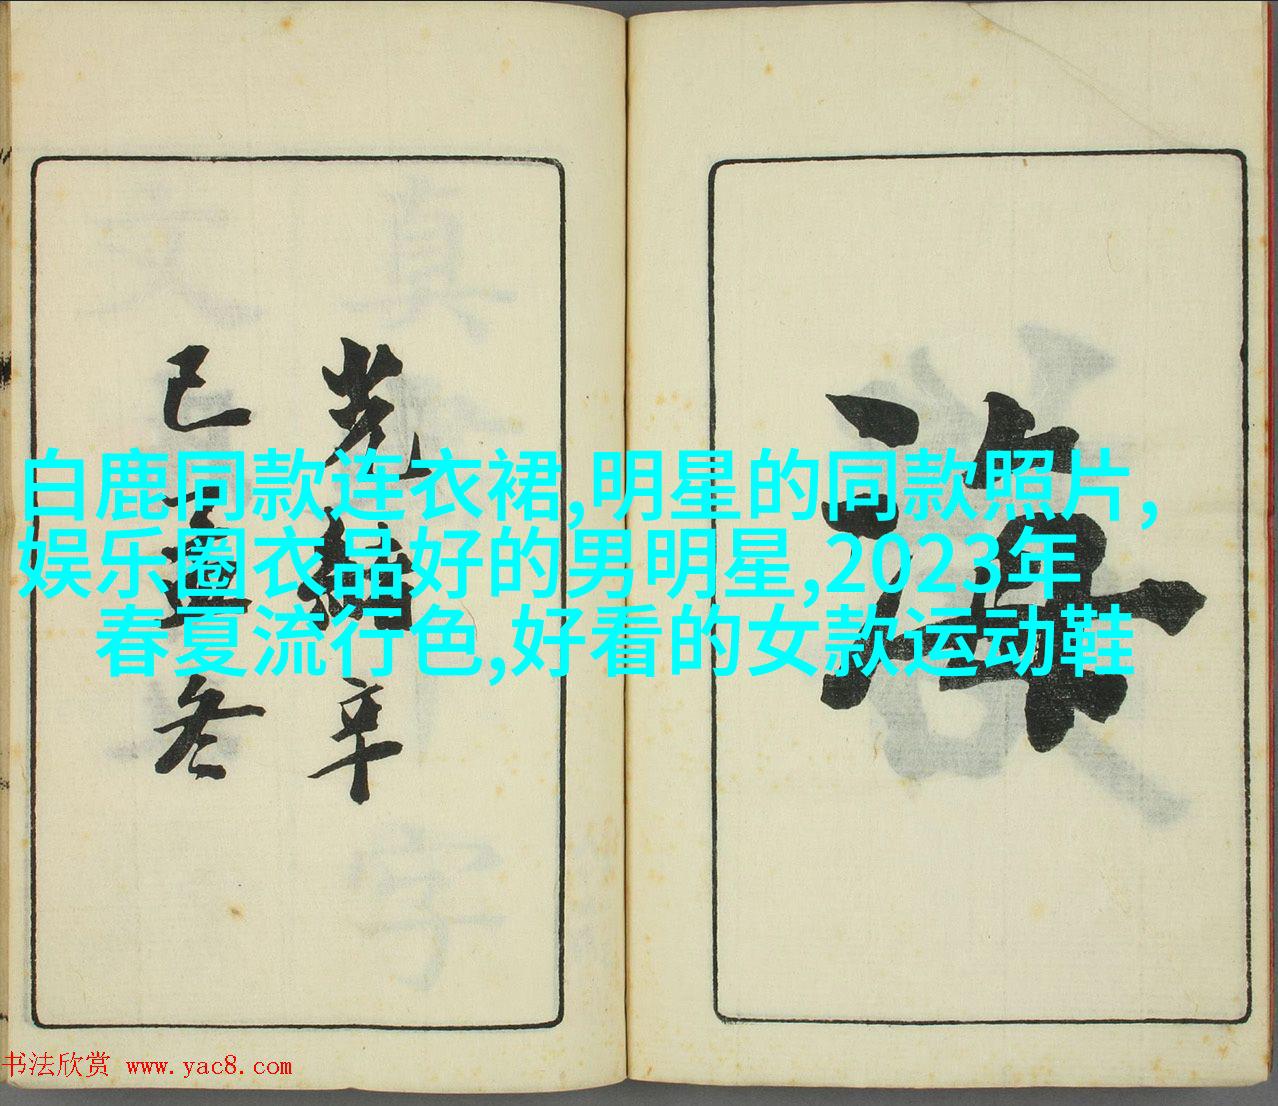 光緒辛
巳孟冬
白鹿同款连衣裙,明星的同款照片,
娱乐圈衣品好的男明星,2023年
春夏流行色,好看的女款运动鞋
书法欣赏 www.yac8.com